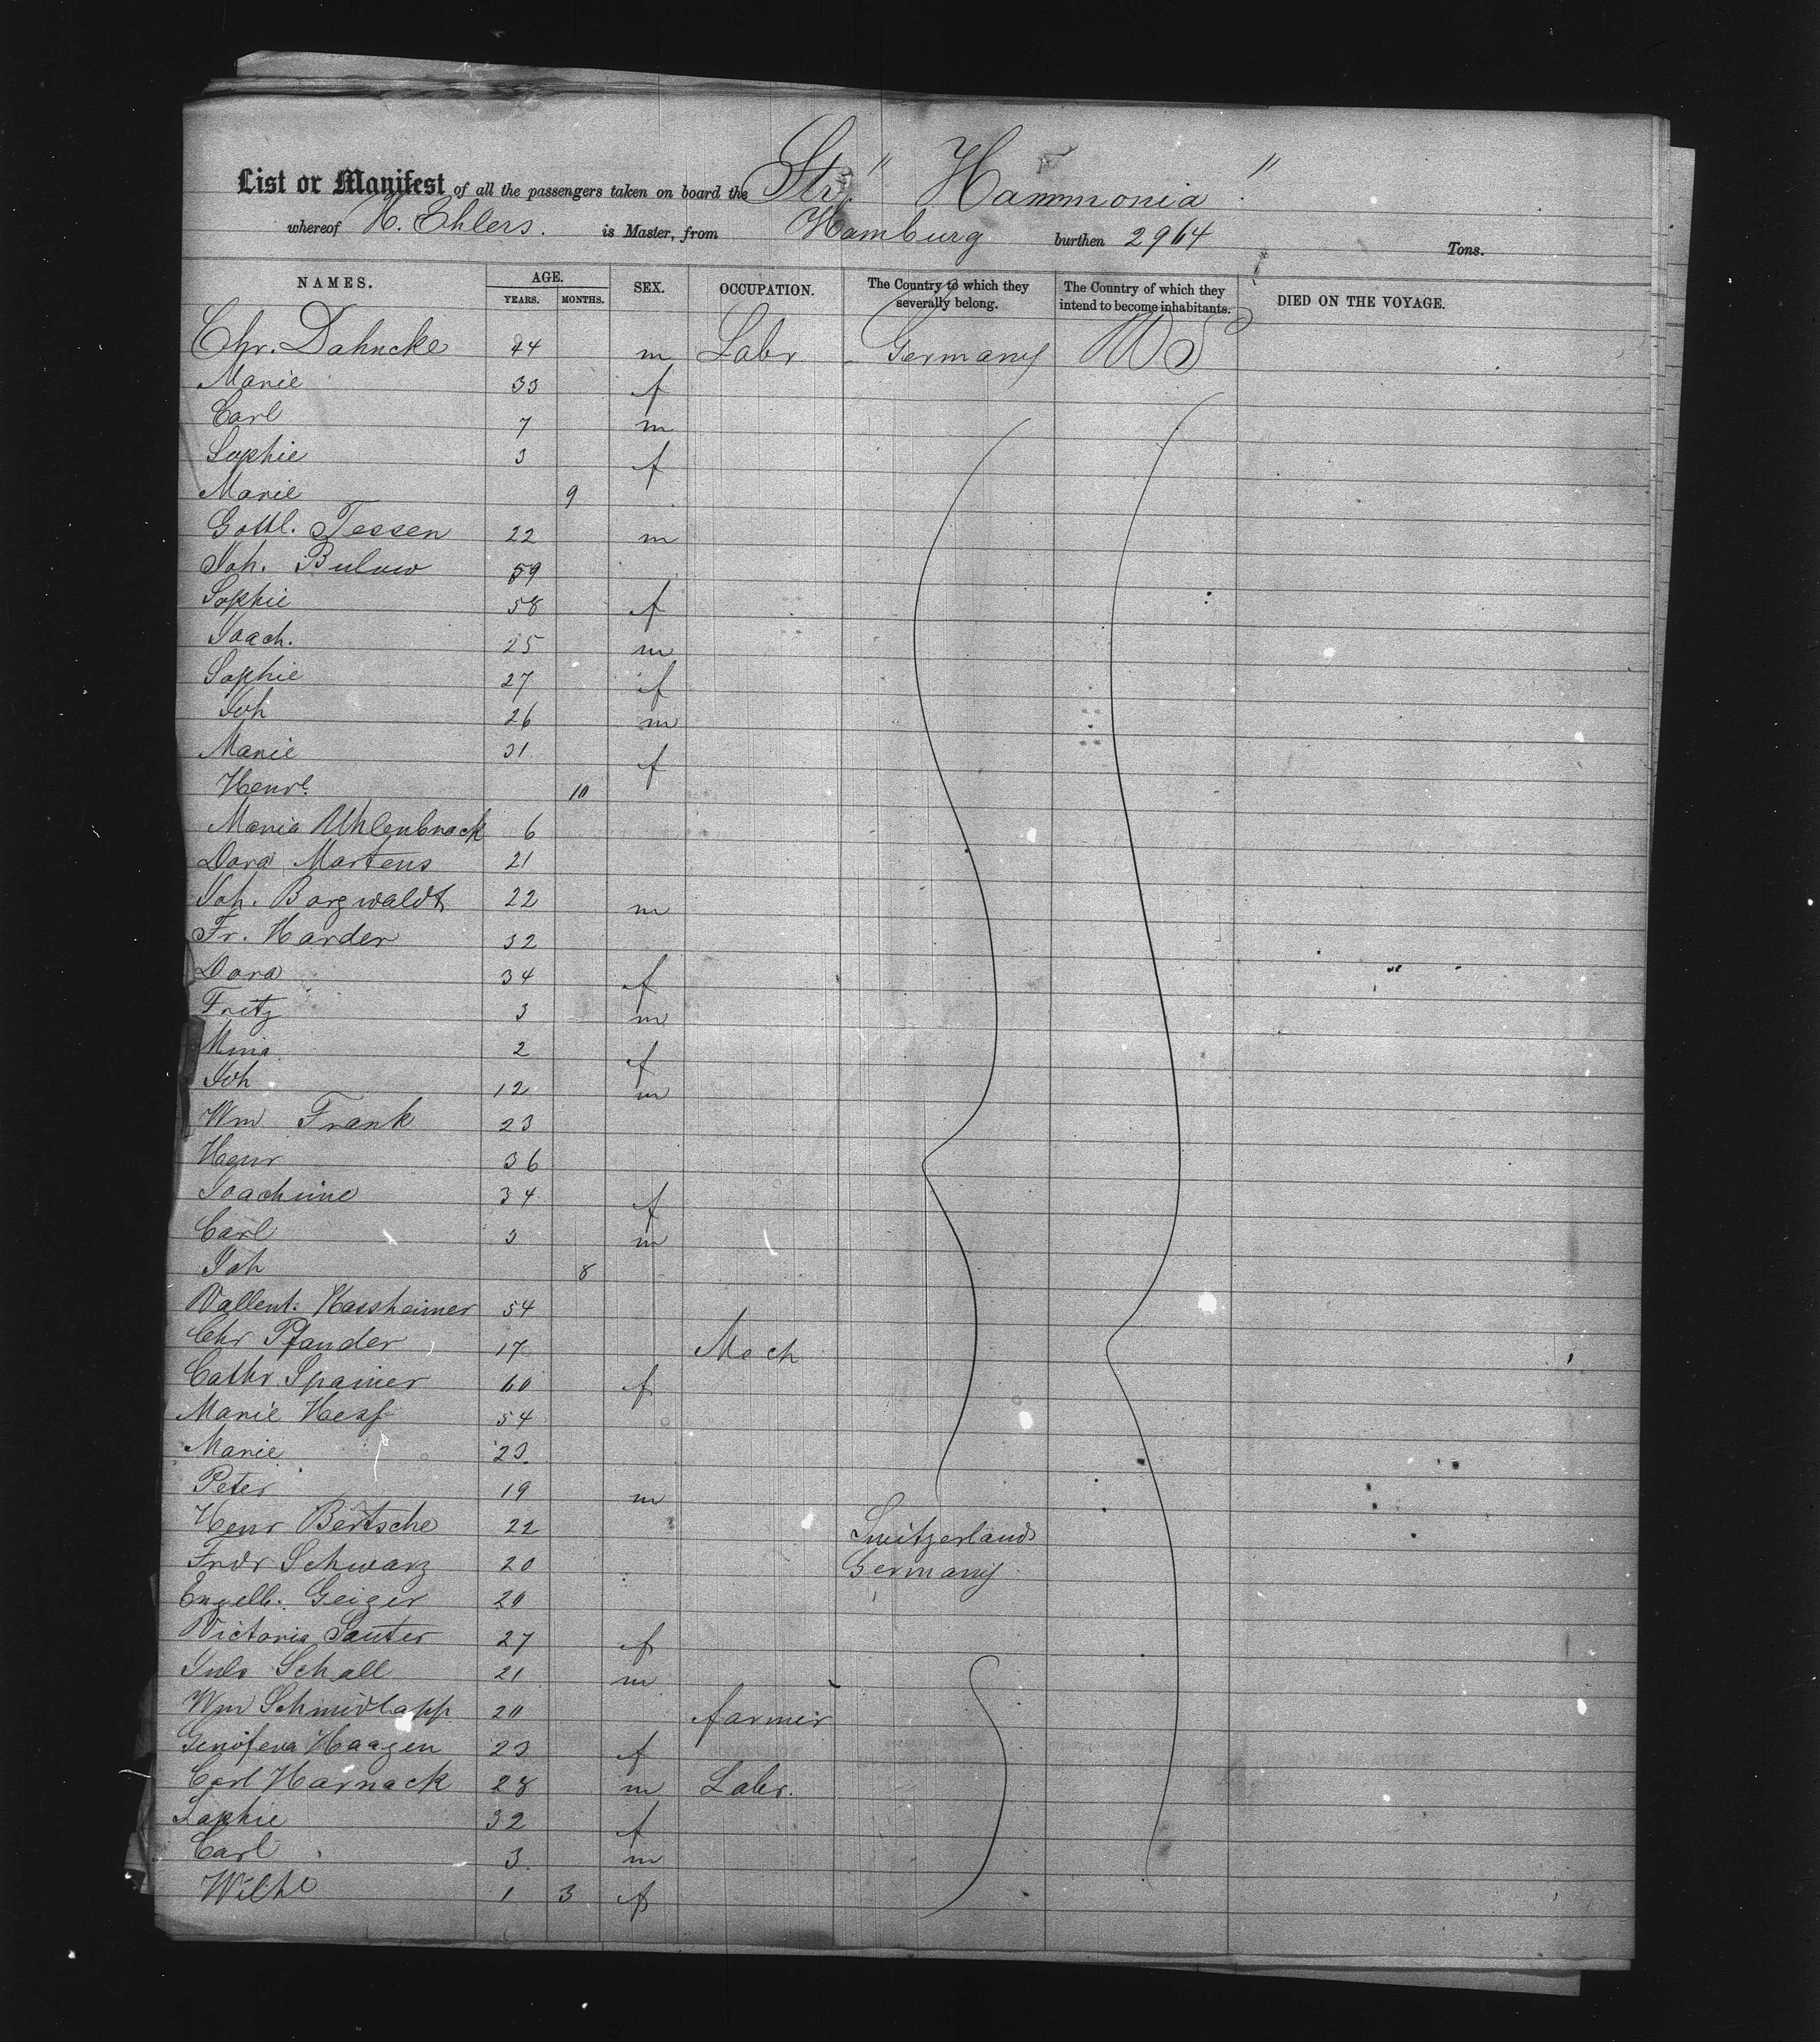 List or Manifest of all the passengers taken on board the Str "Hammonia"
whereof H. Ehlers. is Master, from Hamburg burthen 2964 Tons.
NAMES. AGE. YEARS. MONTHS. SEX. OCCUPATION. The Country to which they severally belong. The Country of which they intend to become inhabitants. DIED ON THE VOYAGE.
Chr. Dahncke 44 m Labr Germany US
Marie 33 f
Carl 7 m
Sophie 3 f
Marie 9
Gottl. Tessen 22 m
Joh. Bulow 59
Sophie 58 f
Joach. 25 m
Sophie 27 f
Joh 26 m
Marie 31 f
Henre. 10
Maria Uhlenbrack 6
Dora Martens 21
Joh. Borgwaldt 22 m
Fr. Harder 32
Dora 34 f
Fritz 3 m
Mina 2 f
Joh 12 m
Wm Frank 23
Henr 36
Joachime 34 f
Carl 3 m
Joh 8
Vallent. Hassheimer 54
Chr Pfander 17 Mech
Cathr. Spanier 60 f
Marie Hess 54
Marie 23
Peter 19 m
Henr Bertsche 22 Switzerland
Fridr Schwarz 20 Germany
Engelb. Geiger 20
Victoria Sauter 27 f
Juls Schall 21 m
Wm Schmidlapp 20 farmer
Genofeva Haagen 23 f
Carl Harnack 28 m Labr.
Sophie 32 f
Carl 3 m
Wilhe 1 3 f